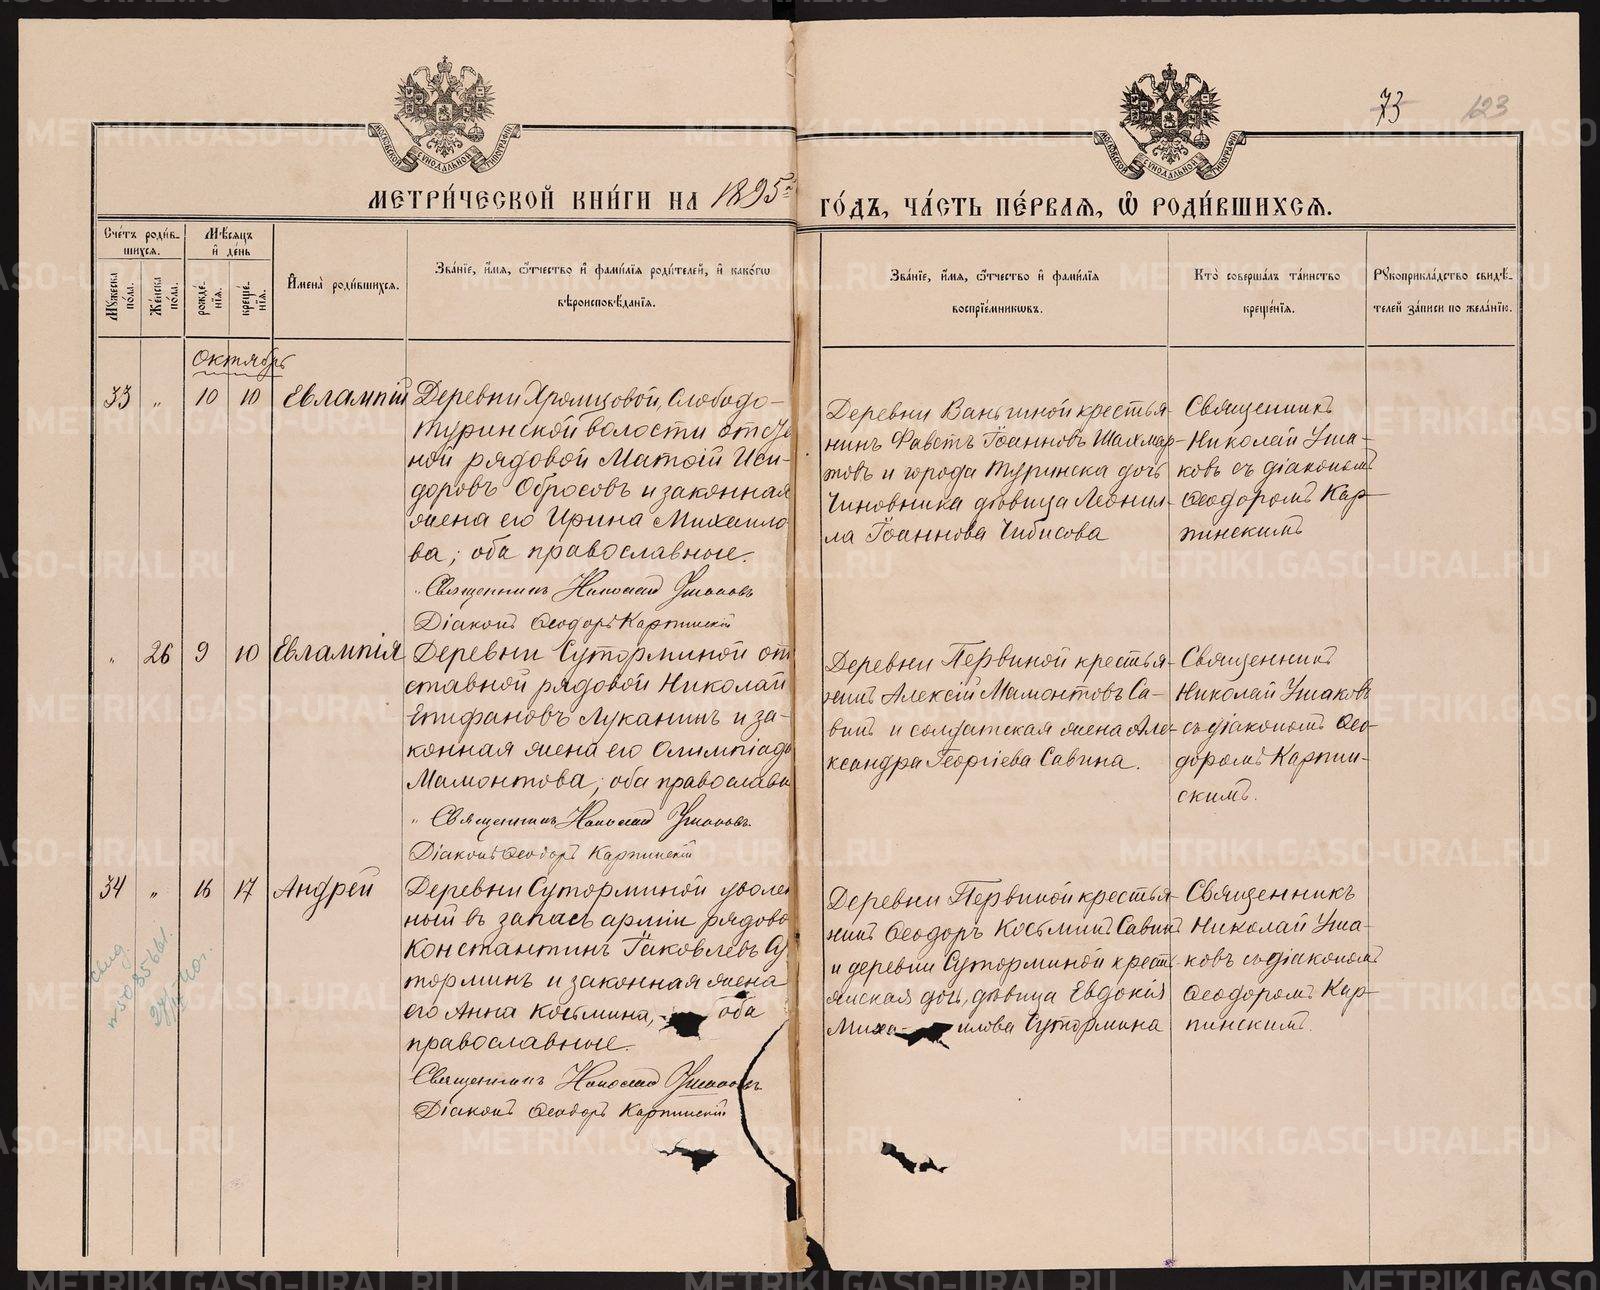 73
123
МОСКОВСКОЙ СѴНОДАЛЬНОЙ ТИПОГРАФІИ
МОСКОВСКОЙ СѴНОДАЛЬНОЙ ТИПОГРАФІИ
МЕТРИ́ЧЕСКОЙ КНИ́ГИ НА 1895й
ГО́ДЪ, ЧА́СТЬ ПЕ́РВАѦ, Ѡ҆ РОДИ́ВШИХСѦ.
Сче́тъ роди́в-
шихсѧ.
Мꙋ́жеска по́ла.
Же́нска по́ла.
Мѣ́сѧцъ
и҆ де́нь
рожде́-
нїѧ.
креще́-
нїѧ.
И҆мена̀ роди́вшихсѧ.
Зва́нїе, и҆́мѧ, ѻ҆́тчество и҆ фамі́лїѧ роди́телей, и҆ како́гѡ
вѣроисповѣ́данїѧ.
Зва́нїе, и҆́мѧ, ѻ҆́тчество и҆ фамі́лїѧ
воспрїе́мникѡвъ.
Кто̀ соверша́лъ та́инство
креще́нїѧ.
Рꙋкоприкла́дство свидѣ́-
телей за́писи по жела́нїю.
Октябрь
33 „ 10 10 Евлампій
Деревни Храмцовой, Слободо-
туринской волости отстав-
ной рядовой Матѳій Иси-
доровъ Обросовъ и законная
жена его Ирина Михаило
ва; оба православные.
Священникъ Николай Ушаковъ
Діаконъ Ѳеодоръ Карпинскій
Деревни Ваньгиной крестья-
нинъ Фавстъ Іоанновъ Шахмар-
товъ и города Туринска дочь
Чиновника дѣвица Леонил-
ла Іоаннова Чибисова
Священникъ
Николай Уша-
ковъ съ діакономъ
Ѳеодоромъ Кар-
пинскимъ
„ 26 9 10 Евлампія
Деревни Суторминой от
ставной рядовой Николай
Епифановъ Луканинъ и за-
конная жена его Олимпіада
Мамонтова; оба православн
Священникъ Николай Ушаковъ.
Діаконъ Ѳеодоръ Карпинскій
Деревни Первиной крестья-
нинъ Алексій Мамонтовъ Са-
винъ и солдатская жена Але-
ксандра Георгіева Савина.
Священникъ
Николай Ушаковъ
съ діакономъ Ѳео-
доромъ Карпин-
скимъ.
34 „ 16 17 Андрей
Деревни Суторминой уволен
ный въ запасъ арміи рядово
Константинъ Іаковлевъ Су
торминъ и законная жена
его Анна Косьмина, оба
православные.
Священникъ Николай Ушаковъ
Діаконъ Ѳеодоръ Карпинскій
Деревни Первиной крестья-
нинъ Ѳеодоръ Косьминъ Савинъ
и деревни Суторминой крестъ
янская дочь, дѣвица Евдокія
Миха- илова Сутормина
Священникъ
Николай Уша-
ковъ съ діакономъ
Ѳеодоромъ Кар-
пинскимъ.
METRIKI.GASO-URAL.RU